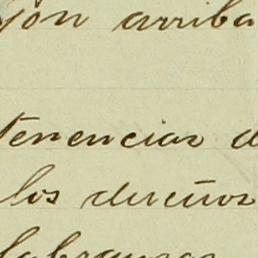 jon arriba
tenencias d
los dueños
labranzas